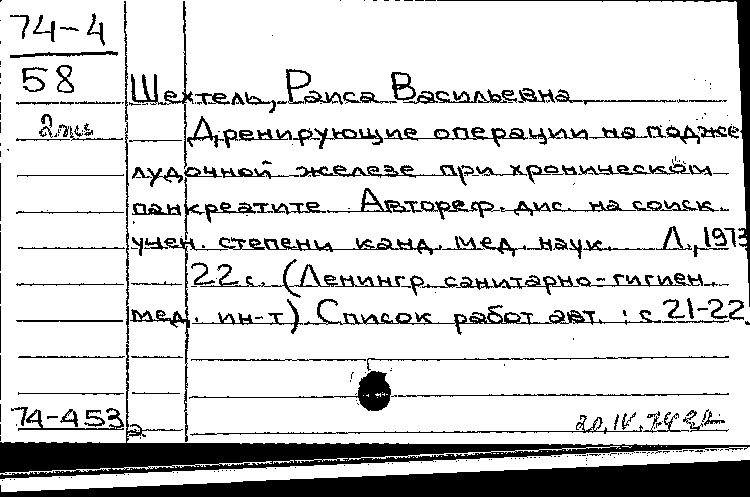 74-4
58
Шехтель, Раиса Васильевна.
Дренирующие операции на подже
лудочной железе при хроническом
панкреатите. Автореф. дис. на соиск.
учен. степени канд. мед. наук. Л., 1973
22 с. (Ленингр. санитарно-гигиен.
мед. ин-т). Список работ авт.: с 21-22.
74-453
20.IV.74